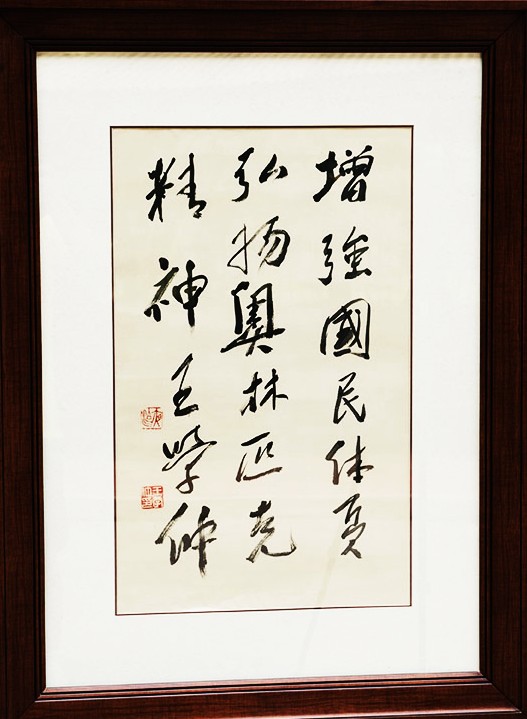 增強國民体质
弘扬奧林匹克
精神王學仲